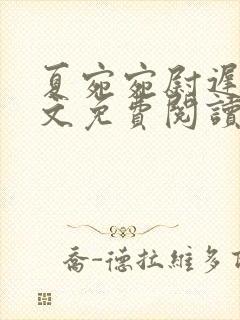 夏宛宛尉遲
文免費閱讀
喬-德拉維多